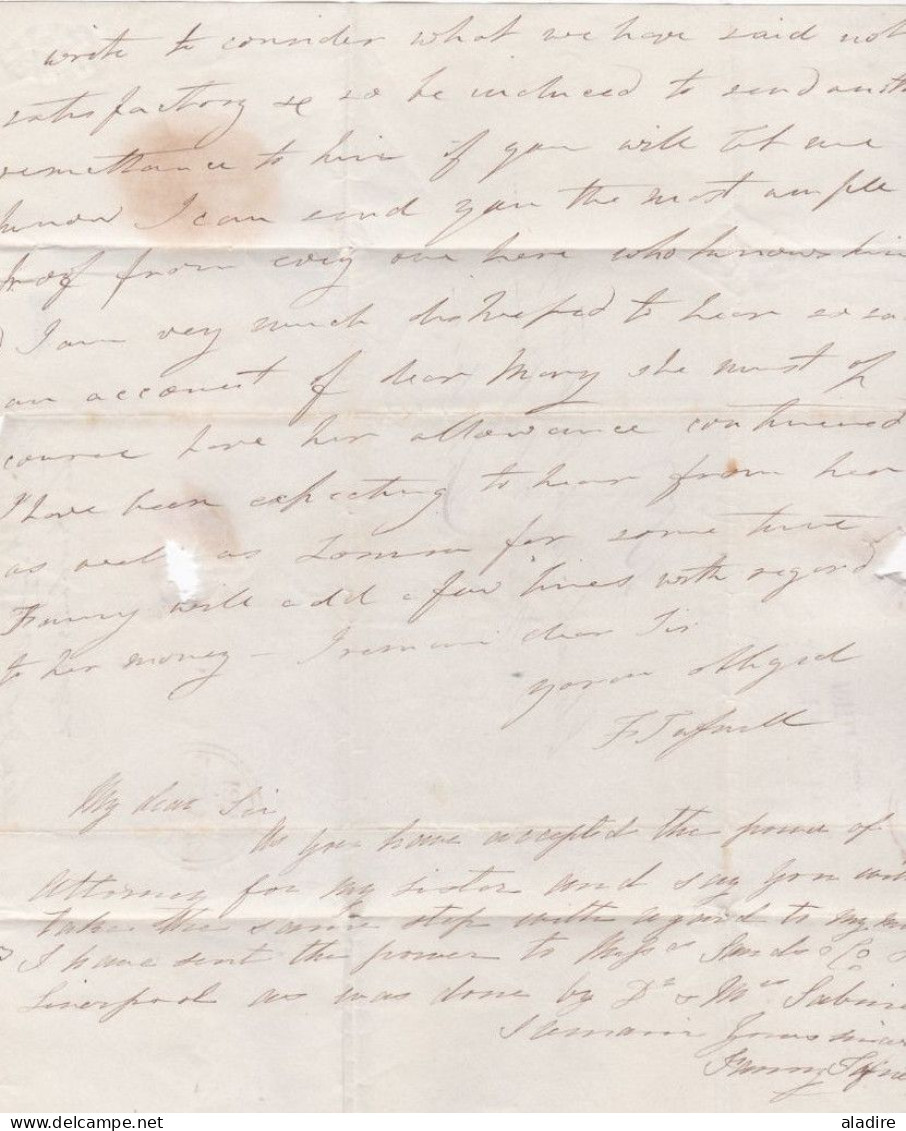 write to consider what we have said not
satisfactory & so be induced to send
remittance to him if you will let me
know I can send you the most ample
proof from evey one here who knows him
I am very much distressed to hear so
an account of dear Mary she must of
course have her allowance continued
I have been expecting to hear from her
as well as for some time
Fanny will add a few lines with regard
to her money - I remain dear Sir
your obliged
F
My dear Sir
As you have accepted the power of
Attorney for my sister and say you
take the same step with regard to my
I have sent the power to Messrs Sands & Co
Liverpool as was done by Dr & Mrs Sabine
I remain Yours
Fanny
aladire